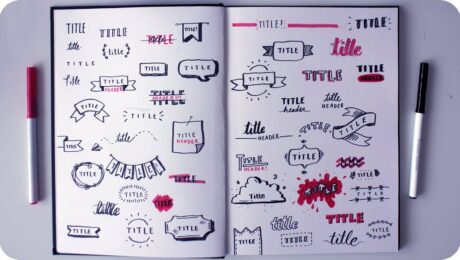 title
TITLE
TITLE
TITLE!
title
title
TITLE
TITLE
TITLE
HEADER
TITLE
TITLE
TITLE
HEADER
TITLE
TITLE
TITLE
TITLE
HEADER
TITLE
title
TITLE
TITLE
TITLE
TITLE
title
TITLE
TITLE
TITLE
TITLE!
TITLE
TITLE
title
TITLE
TITLE
TITLE
HEADER
TITLE
header
title
HEADER
title
HEADER
TITLE
TITLE
TITLE
HEADER
TITLE
TITLE
Title
TITLE
TITLE
title
TITLE
TITLE
TITLE
title
TITLE